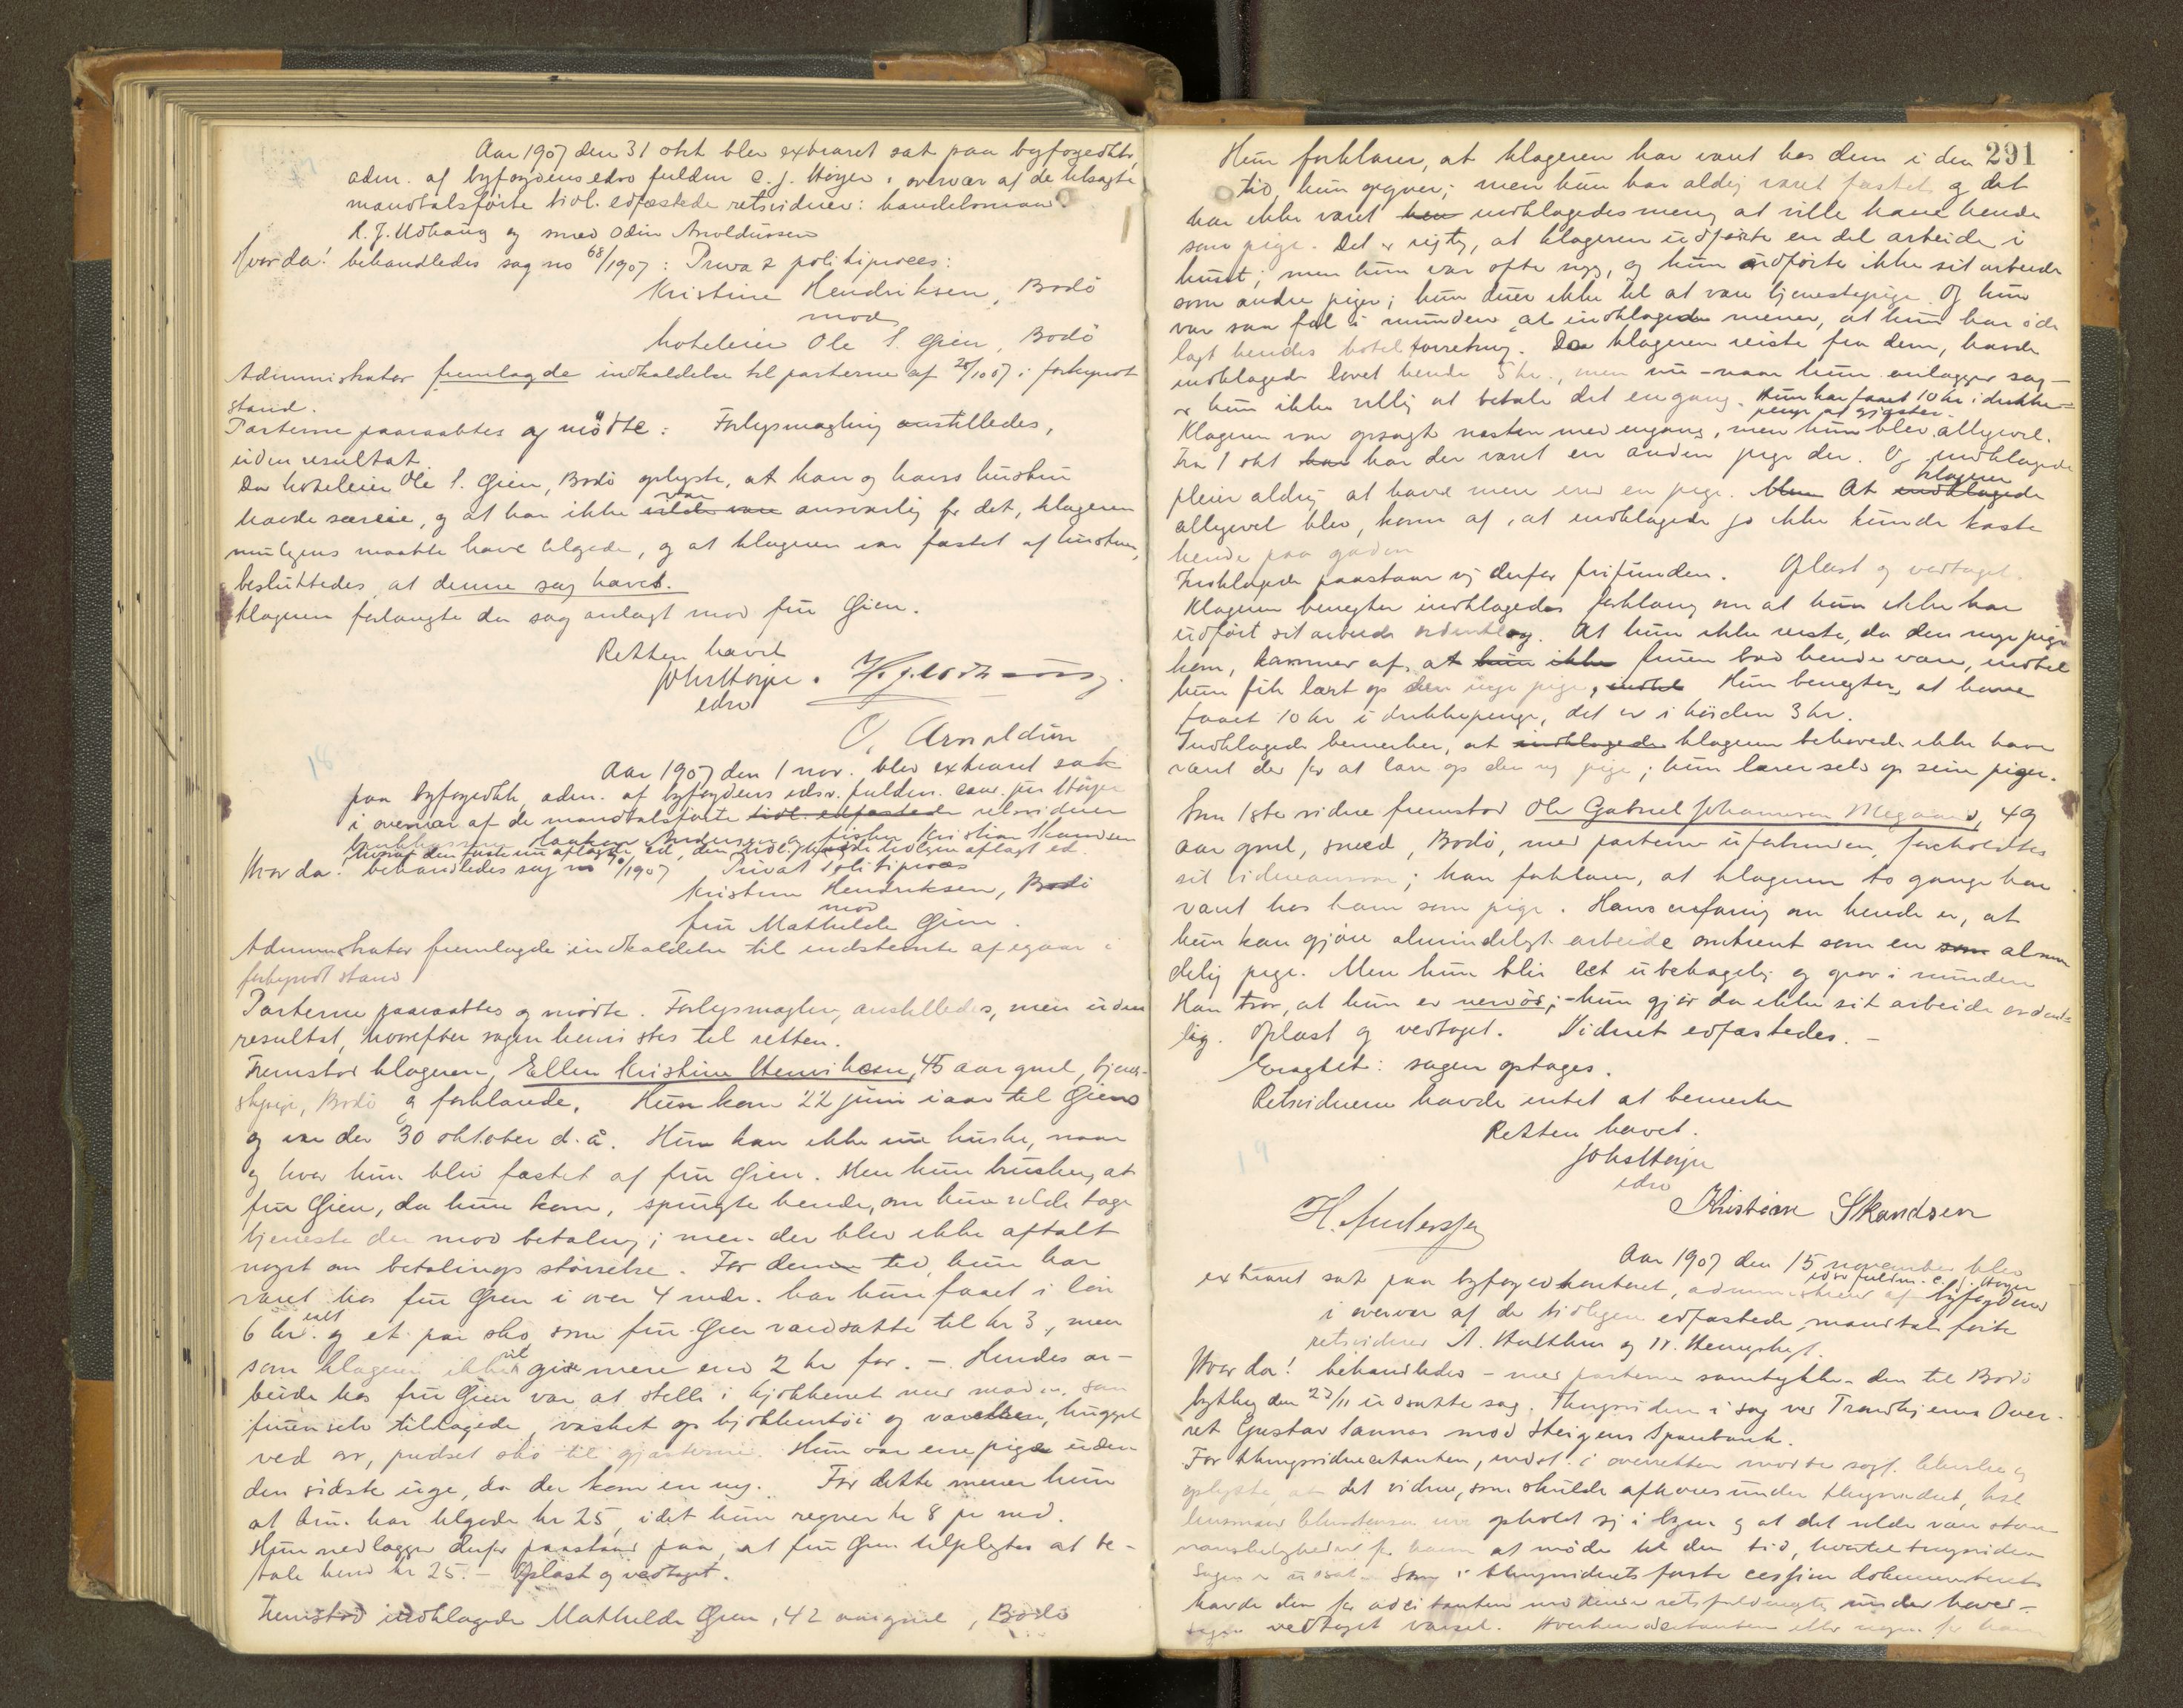 Aar 1907 den 31 okt blev extraret sat paa byfogedktr,
adm. af byfogdens edsv fuldm C. J. Höyer i overvær af de tilsagte
mandtalsförte tidl. edfæstede retsvidner: handelsmand
K. J. Udhaug og smed Odin Arnoldussen
Hvorda! behandledes sag no 68/1907: Privat politiproces:
Kristine Hendriksen, Bodö
mod
hoteleier Ole S. Gien, Bodö
Administrator fremlagde indkaldelse til parterne af 28/10 07 i forkyndt
stand.
Parterne paaraabtes og mödte: Forligsmægling anstilledes,
uden resultat.
Da hoteleier Ole S. Gien, Bodö oplyste, at han og hans hustru
havde særeie, og at han ikke vilde være var ansvarlig for det, klageren
muligens maatte have tilgode, og at klageren var fæstet af hustruen,
besluttedes at denne sag hævet.
Klageren forlangte da sag anlagt mod fru Gien.
Retten hævet
Johs Höyer. K. J. Udhaug.
edsv
O. Arnoldsen
18
Aar 1907 den 1 nov. blev extraret sat
paa byfogedktr, adm. af byfogdens edsv. fuldm. cand. jur Höyer
i overvær af de mandtalsförte tidl. edfæstede retsvidner
Haakon Andersen og fisker Kristian Skandsen
hvoraf den förste nu aflagde ed, den tidligere aflagt ed
Hvorda! behandledes sag no /1907 Privat politiproces
Kristine Hendriksen, Bodö
mod
fru Mathilde Gien.
Administrator fremlagde indkaldelse til indstevnte af igaar i
forkyndt stand
Parterne paaraabtes og mödte. Forligsmægling anstilledes, men uden
resultat, hvorefter sagen henvistes til retten.
Fremstod klageren, Ellen Kristine Henriksen, 45 aar gml, tjene-
stepige, Bodö og forklarede. Hun kom 22 juni iaar til Giens
og var der 30 oktober d. å. Hun kan ikke nu huske, naar
og hvor hun blev fæstet af fru Gien. Men hun husker, at
fru Gien, da hun kom, spurgte hende, om hun vilde tage
tjeneste der mod betaling; men der blev ikke aftalt
noget om betalings störrelse. For denne tid, hun har
været hos fru Gien i over 4 mdr. har hun faaet i lön
6 kr. ialt og et par sko som fru Gien værdsatte til kr 3, men
som klageren ikke vil give mere end 2 kr for. - Hendes ar-
beide hos fru Gien var at stelle i kjökkenet med maden som
fruen selv tillagede, vasket op kjökkentöi og værelsen, hugget
ved osv, pudset sko til gjæsterne. Hun var ene pige uden
den sidste uge, da der kom en ny. For dette mener hun
at hun har tilgode kr 25, idet hun regner kr 8 pr md.
Hun nedlægger derfor paastand paa, at fru Gien tilpligtes at be-
tale hend kr 25. - Oplæst og vedtaget.
Fremstod indklagede Mathilde Gien, 42 aar gml, Bodö
291
Hun forklarer, at klageren har været hos dem i den
tid, hun opgiver; men hun har aldrig været fæstet, og det
har ikke været hen indklagedes mening at ville have hende
som pige. Det er rigtig, at klageren udförte en del arbeide i
huset; men hun var ofte syg, og hun udförte ikke sit arbeide
som andre piger; hun duer ikke til at være tjenestepige. Og hun
var saa fæl i munden, at indklagede mener, at hun har öde-
lagt hendes hotelforretning. Da klageren reiste fra dem, havde
indklagede lovet hende 5 kr., men nu - naar hun anlægger sag -
er hun ikke villig at betale det engang. Hun har faaet 10 kr i drikke-
penge af gjæster.
Klageren var opsagt næsten med engang, men hun blev alligevel.
Fra 1 okt har har der været en anden pige der. Og indklagede
pleier aldrig at have mere end en pige. Men At indklagede klageren
alligevel blev, kom af, at indklagede jo ikke kunde kaste
hende paa gaden
Indklagede paastaar sig derfor frifunden. Oplæst og vedtaget.
Klageren benegter indklagedes forklaring om at hun ikke har
udfört sit arbeide ordentlig. At hun ikke reiste, da den nye pige
kom, kommer af, at hun ikke fruen bad hende være, indtil
hun fik lært op den nye pige, indtil Hun benegter, at have
faaet 10 kr i drikkepenge, det er i höiden 3 kr.
Indklagede bemerker, at indklagede klageren behövede ikke have
været der for at lære op den ny pige; hun lærer selv op sine piger.
Som 1ste vidne fremstod Ole Gabriel Johannesen Megaard, 49
aar gml, smed, Bodö, med parterne uforbunden, foreholdtes
sit vidneansvar; han forklarer, at klageren to gange har
været hos ham som pige. Hans erfaring om hende er, at
hun kan gjöre almindeligt arbeide omtrent som en som almin
delig pige. Men hun blir let ubehagelig og grov i munden
Han tror, at hun er nervös; - hun gjör da ikke sit arbeide ordent-
lig. Oplæst og vedtaget. Vidnet edfæstedes. -
Eragtet: sagen optages.
Retsvidnerne havde intet at bemerke
Retten hævet.
19
Johs Höyer
edsv
H. Andersen
Kristian Skandsen
Aar 1907 den 15 november blev
extraret sat paa byfogedkontoret, administreret af byfogdens
edsv fuldm. C. J. Höyer
i overvær af de tidligere edfæstede, mandtalsförte
retsvidner
Hvorda! behandledes - med parternes samtykke - den til Bodö
byting den 23/11 udsatte sag. Thingsvidne i sag ved Trondhjems Over-
ret Gustav mod Steigens Sparebank.
For thingsvidnecitanten, indst. i overretten mödte sagf.
oplyste, at det vidne, som skulde afhöres under thingsvidnet,
lensmand opholdt sig i byen og at det vilde være store
vanskeligheder for ham at möde til den tid, hvortil tingsvidne
sagen er udsat. Som i thingsvidnets förste session dokumenteret
havde den for citanten mödende retsfuldmægtig under hoved-
sagen vedtaget varsel.